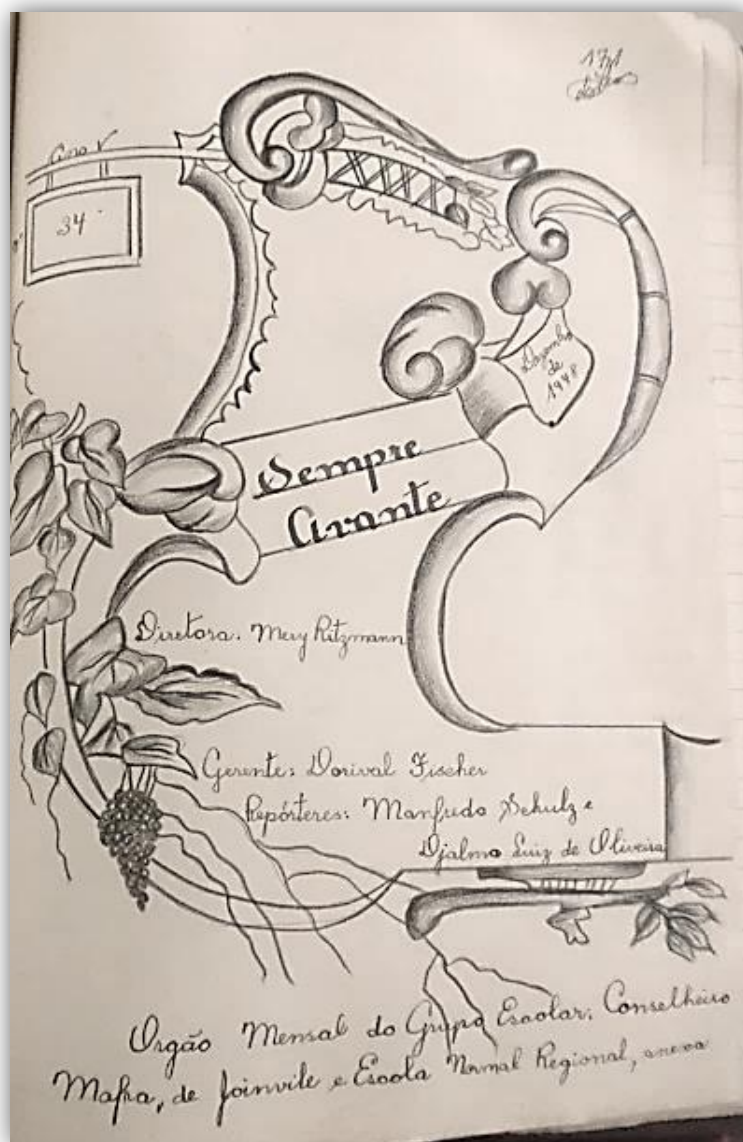 171
Ano V
34
Dezembro
de
1948
Sempre
Avante
Diretora. Mery Ritzmann
Gerente: Dorival Fischer
Repórteres: Manfredo Schulz e
Djalma Luiz de Oliveira
Orgão Mensal do Grupo Escolar: Conselheiro
Mafra, de Joinvile e Escola Normal Regional, anexa